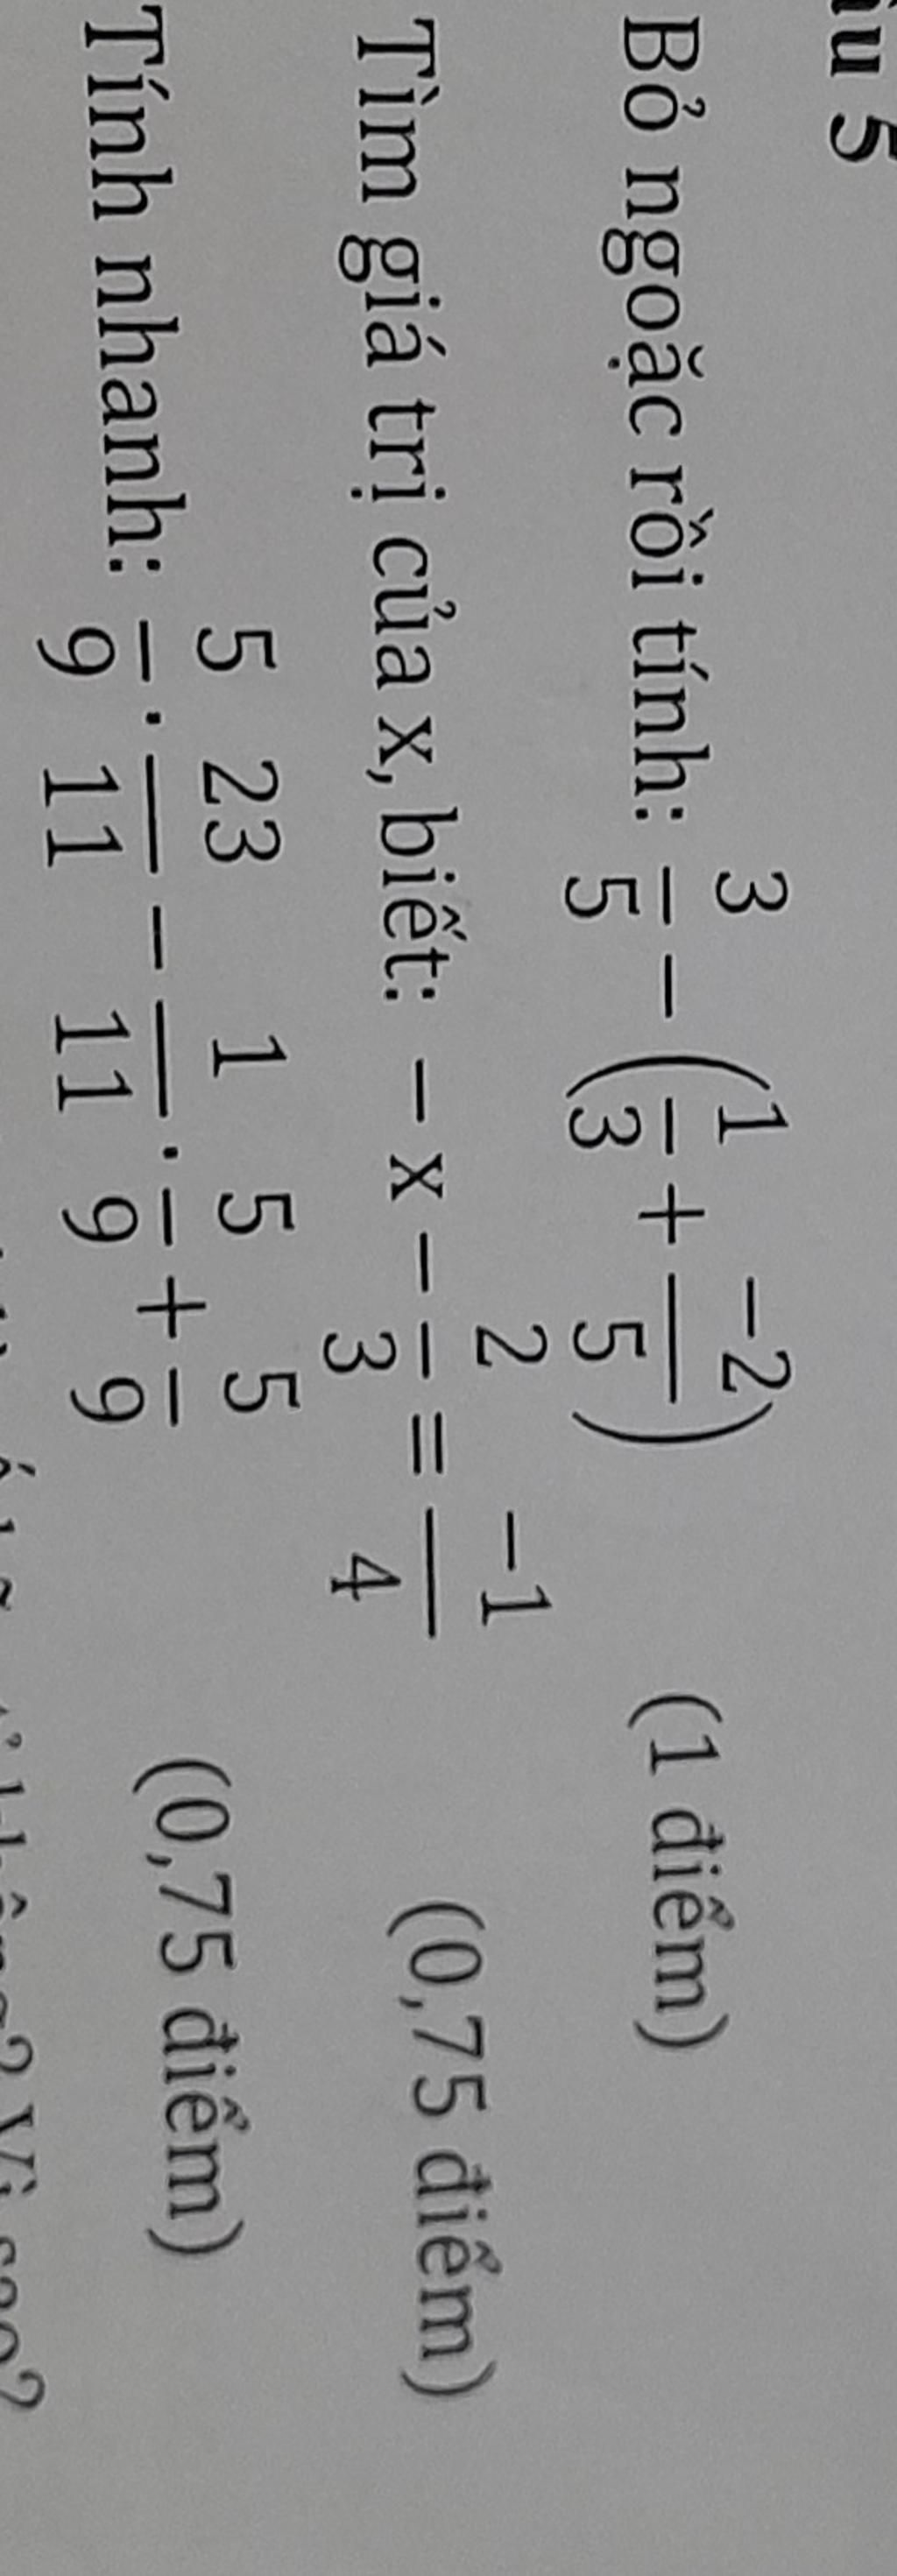 5
Bỏ ngoặc rồi tính: 3/5 − (1/3 + −2/5) (1 điểm)
Tìm giá trị của x, biết: − x − 2/3 = −1/4 (0,75 điểm)
Tính nhanh: 5/9 . 23/11 − 1/11 . 5/9 + 5/9 (0,75 điểm)